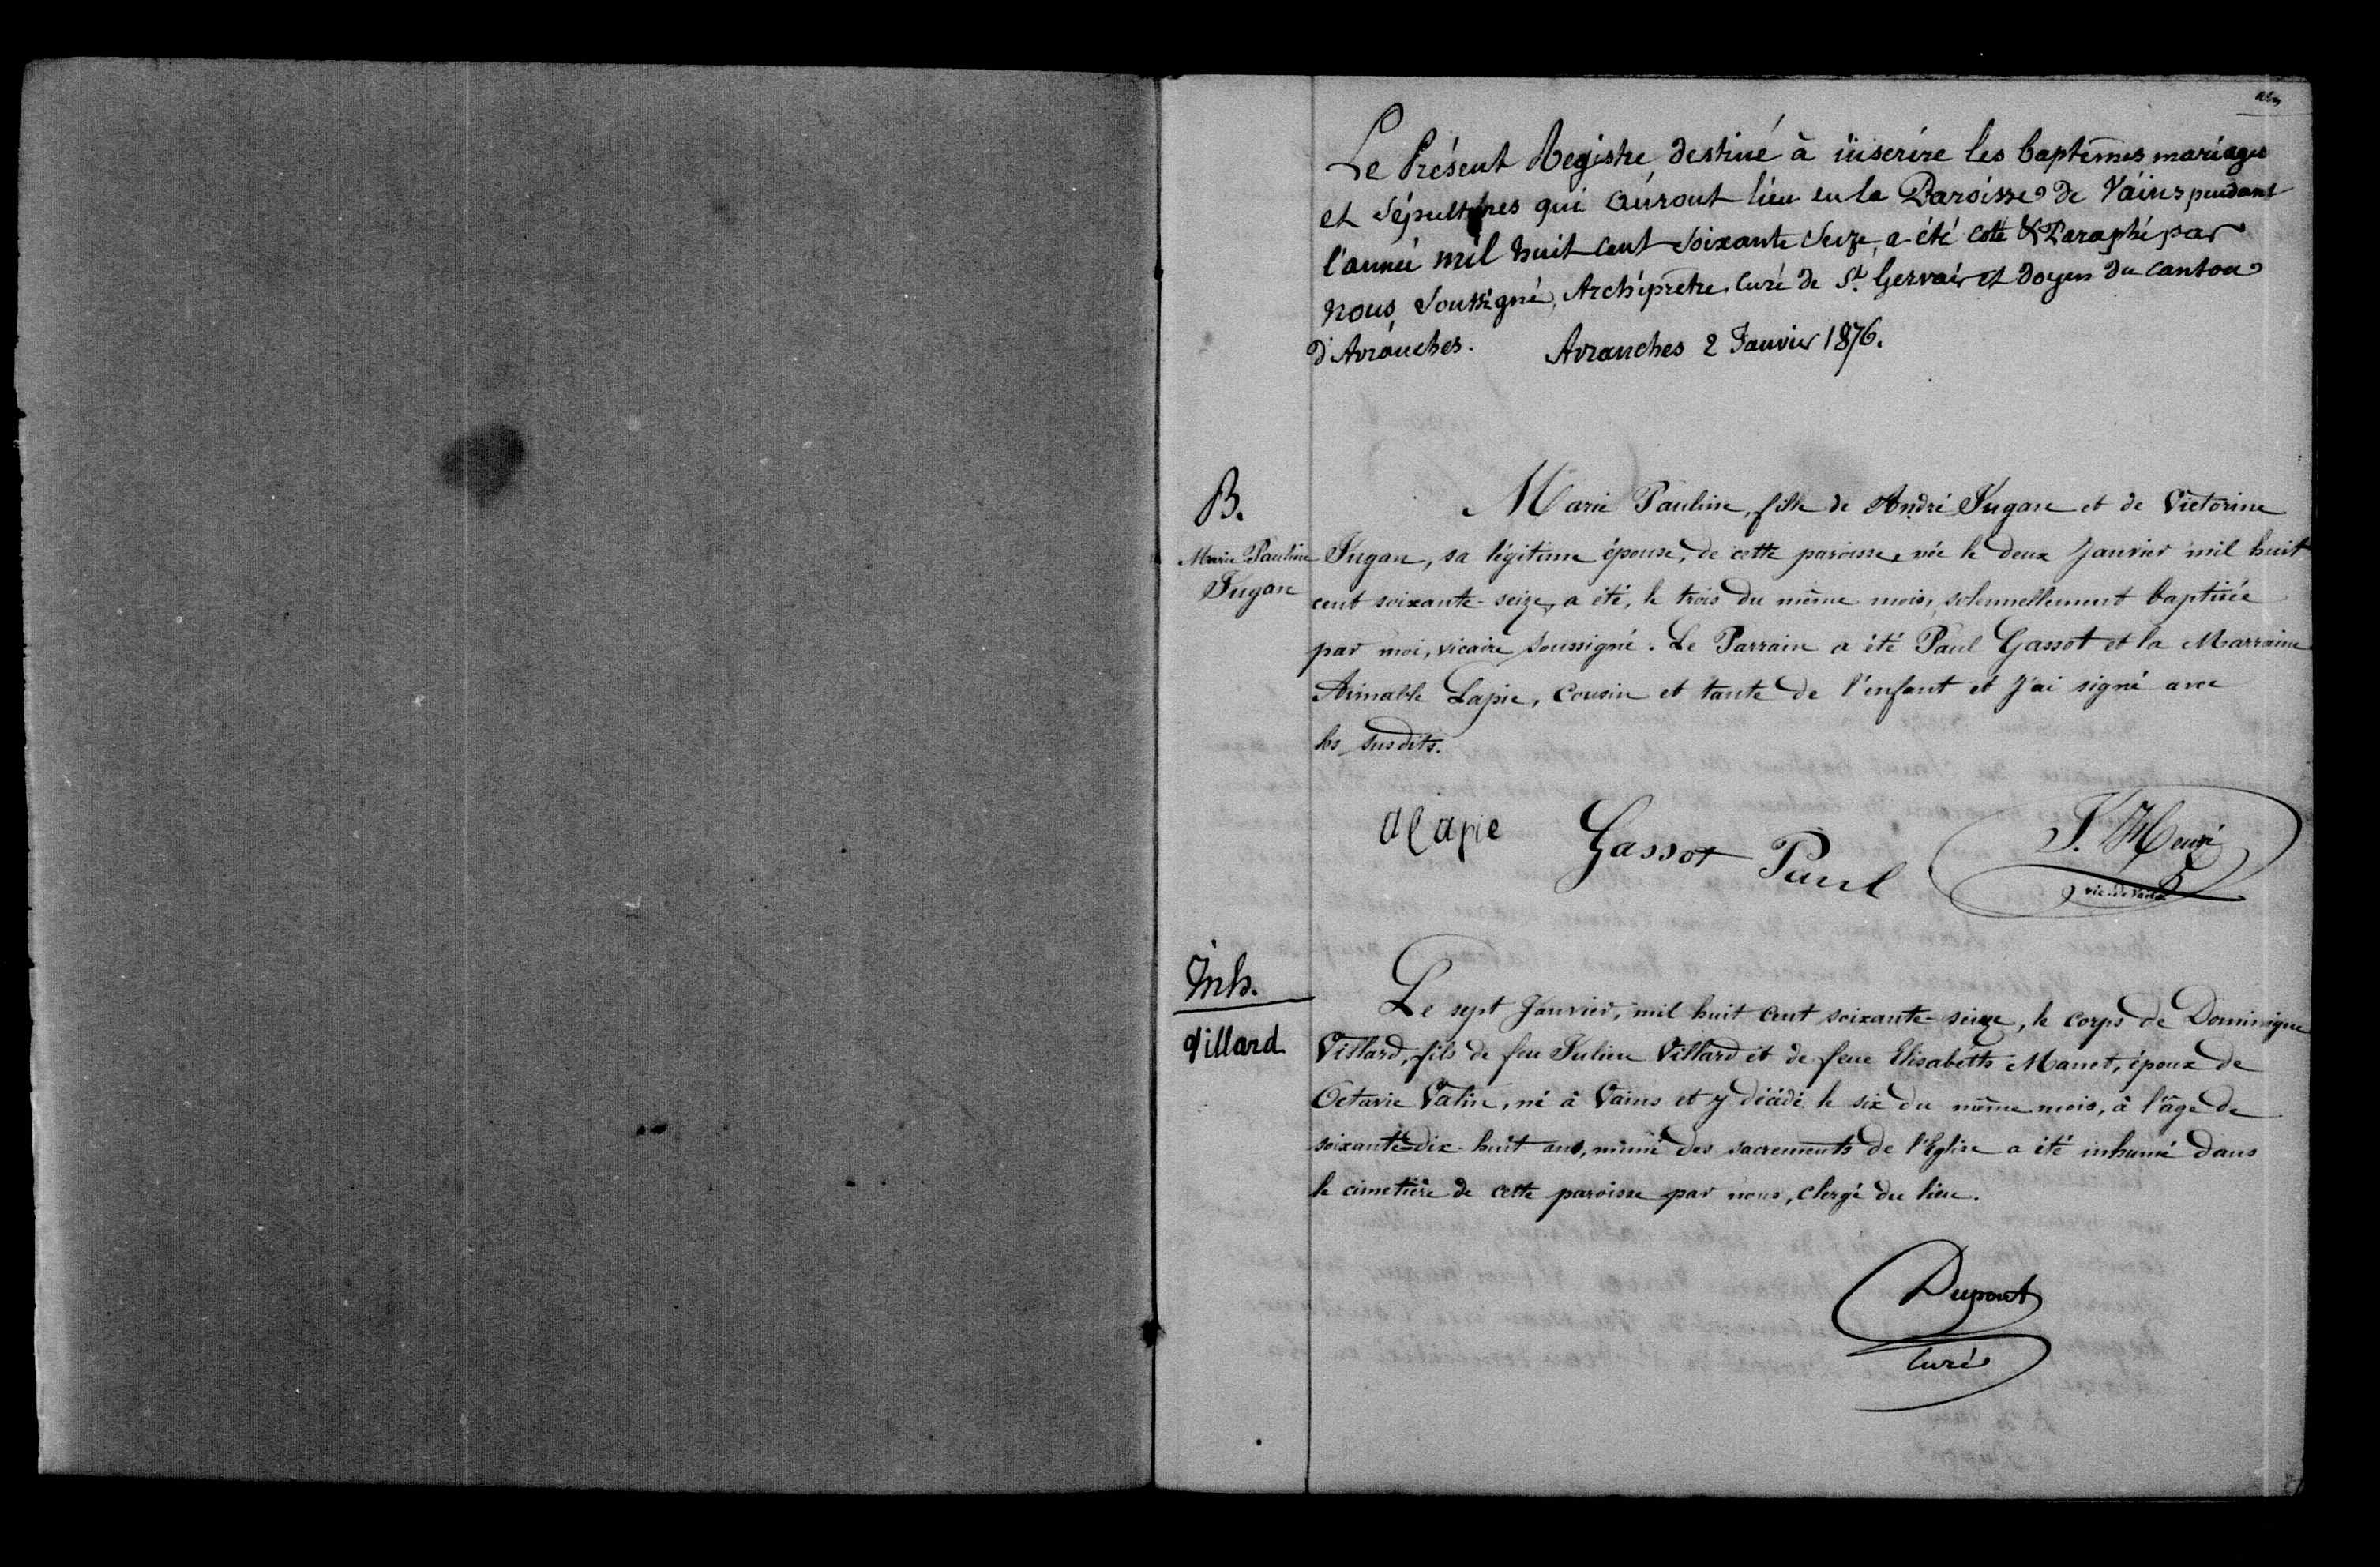 Le Présent Registre destiné à inscrire les baptêmes mariages
et sépultures qui auront lieu en la Paroisse de Vains pendant
l'année mil huit cent soixante seize, a été coté & Paraphé par
nous, soussigné, Archiprêtre, curé de St. Gervais et doyen du canton
d'Avranches. Avranches 2 Janvier 1876.
B.
Marie Pauline
Jugan
Marie Pauline, fille de André Jugan et de Victorine
Jugan, sa légitime épouse, de cette paroisse, née le deux Janvier mil huit
cent soixante-seize, a été, le trois du même mois, solennellement baptisée
par moi, vicaire soussigné. Le Parrain a été Paul Gassot et la Marraine
Aimable Lapie, Cousin et tante de l'enfant et j'ai signé avec
les susdits.
a lapie Gassot Paul
vic. de Vains
Inh.
Villard
Le sept Janvier, mil huit cent soixante-seize, le corps de Dominique
Villard, fils de feu Julien Villard et de feue Elisabeth Manet, époux de
Octavie Valin, né à Vains et y décédé le six du même mois, à l'âge de
soixante-dix-huit ans, muni des sacrements de l'Eglise a été inhumé dans
le cimetière de cette paroisse par nous, clergé du lieu.
Dupont
Curé